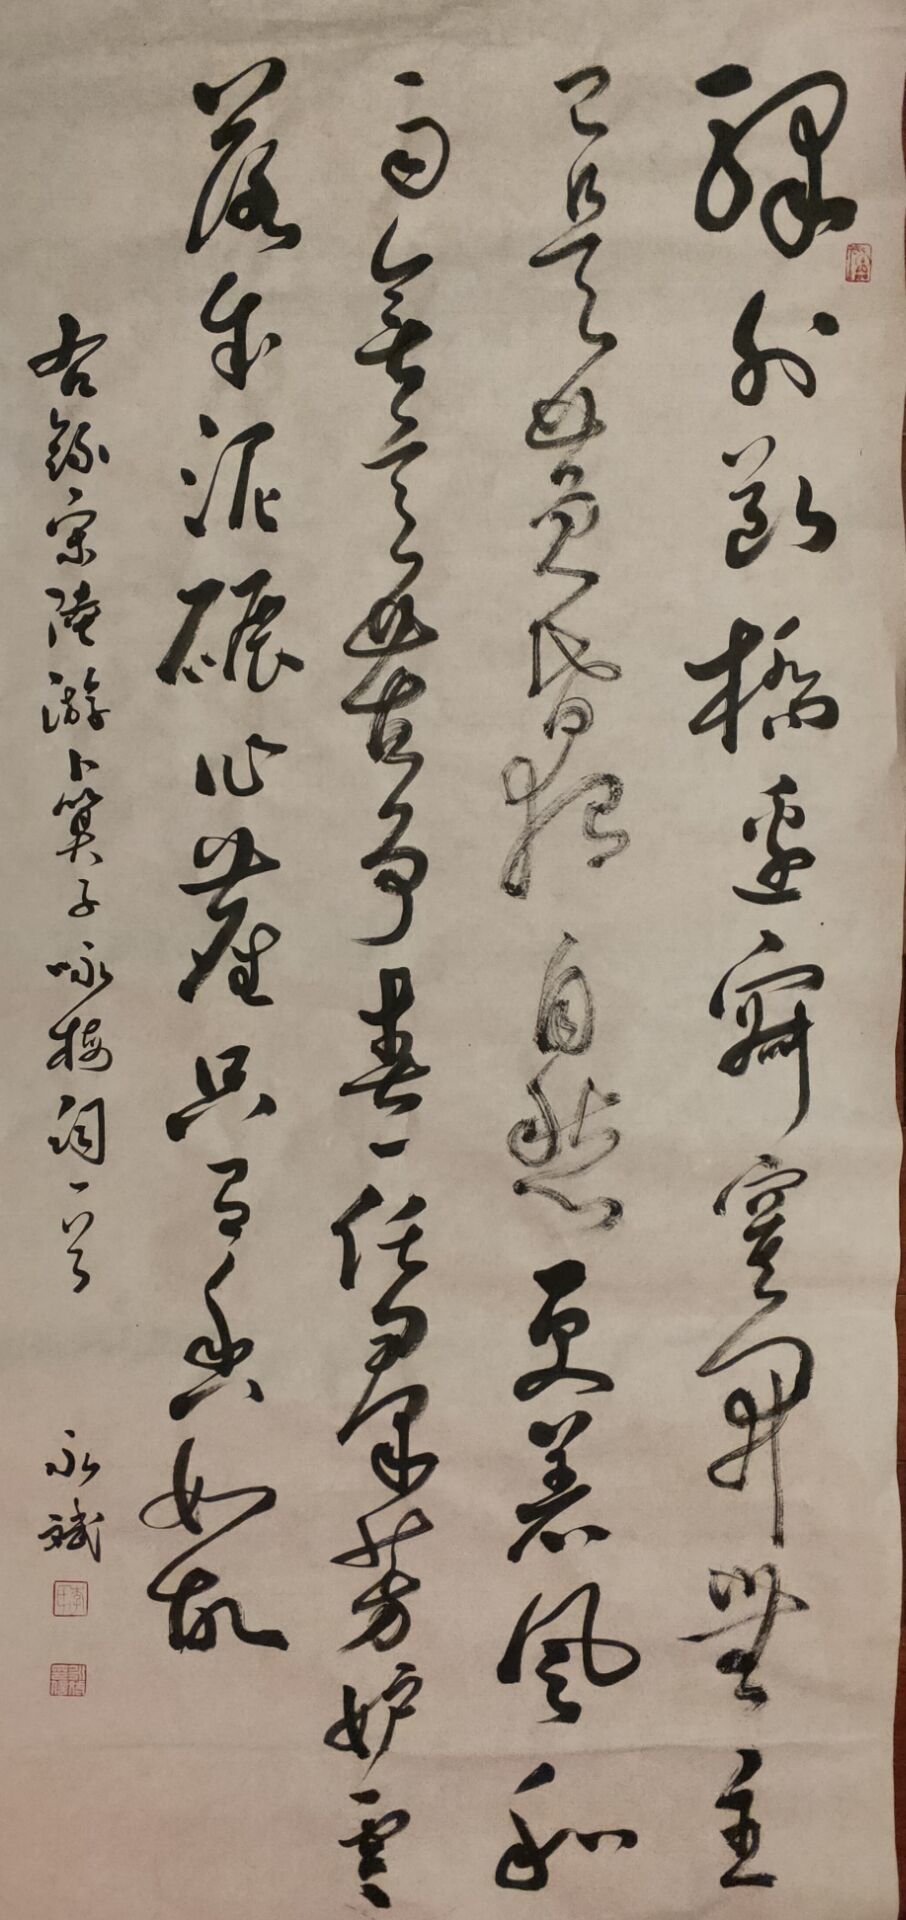 驛外斷橋邊寂寞開無主
已是黃昏獨自愁更著風和
雨無意苦爭春一任羣芳妒零
落成泥碾作塵只有香如故
右錄宋陸游卜算子咏梅詞一首
永斌